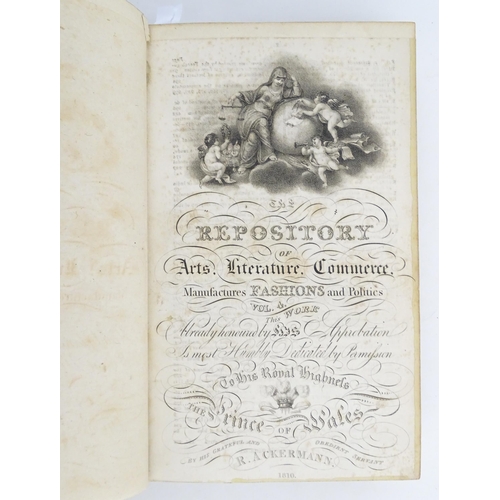 The
REPOSITORY
OF
Arts, Literature, Commerce,
Manufactures FASHIONS and Politics
VOL.
This WORK
Already honoured by HIS Approbation
Is most Humbly Dedicated by Permission
To His Royal Highness
THE Prince OF Wales
BY HIS GRATEFUL AND OBEDIENT SERVANT
R. ACKERMANN.
1810.